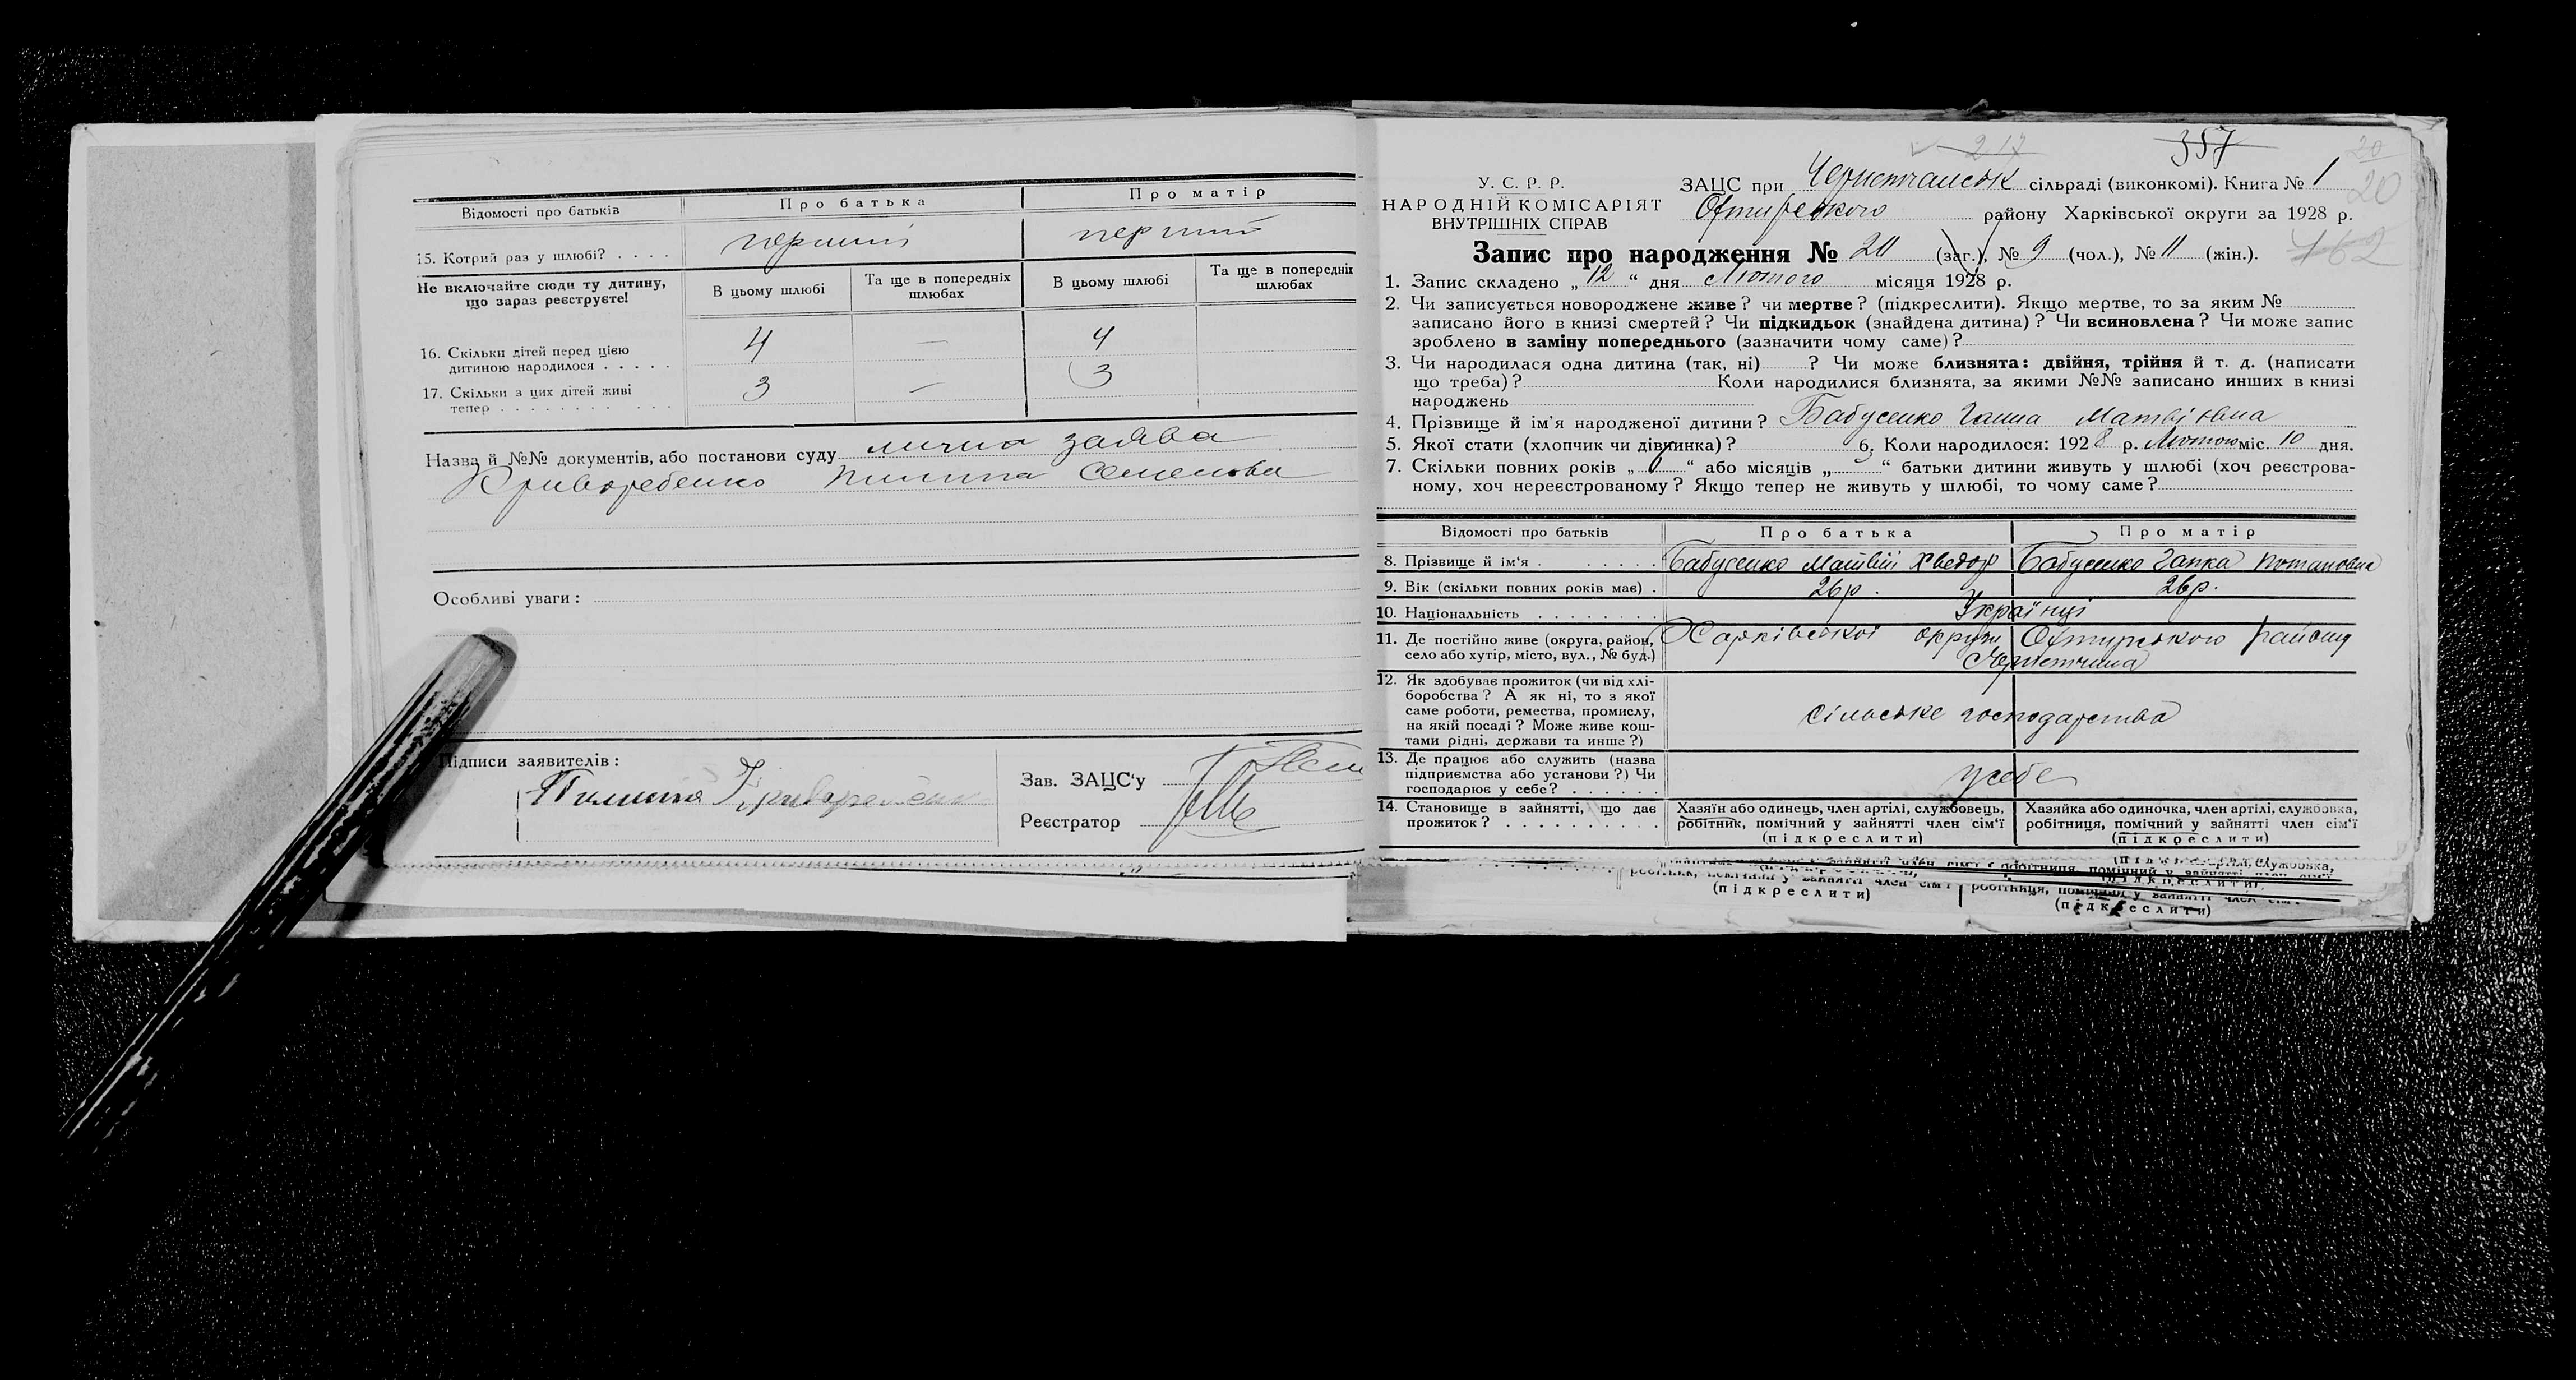 Відомості про батьків
Про батька
Про матір
15. Котрий раз у шлюбі? . . . .
перший
перший
Не включайте сюди ту дитину,
що зараз реєструєте!
В цьому шлюбі
Та ще в попередніх
шлюбах
В цьому шлюбі
Та ще в попередніх
шлюбах
16. Скільки дітей перед цією
дитиною народилося . . . . .
4
—
4
17. Скільки з цих дітей живі
тепер . . . . . . . . . . .
3
—
3
Назва й №№ документів, або постанови суду лична заява
Пилипа Семенова
Особливі уваги:
Підписи заявителів:
Зав. ЗАЦС'у
Реєстратор
217
357
20
20
У. С. Р. Р.
НАРОДНІЙ КОМІСАРІЯТ
ВНУТРІШНІХ СПРАВ
ЗАЦС при сільраді (виконкомі). Книга № 1
Охтирського району Харківської округи за 1928 р.
462
Запис про народження № 20 (заг.), № 9 (чол.), № 11 (жін.).
1. Запис складено „ 12 “ дня Лютого місяця 1928 р.
2. Чи записується новороджене живе? чи мертве? (підкреслити). Якщо мертве, то за яким №
записано його в книзі смертей? Чи підкидьок (знайдена дитина)? Чи всиновлена? Чи може запис
зроблено в заміну попереднього (зазначити чому саме)?
3. Чи народилася одна дитина (так, ні) ? Чи може близнята: двійня, трійня й т. д. (написати
що треба)? Коли народилися близнята, за якими №№ записано инших в книзі
народжень
4. Прізвище й ім'я народженої дитини? Бабусенко Ганна Матвіївна
5. Якої стати (хлопчик чи дівчинка)? 6. Коли народилося: 1928 р. Лютого міс. 10 дня.
7. Скільки повних років „ 6 “ або місяців „ “ батьки дитини живуть у шлюбі (хоч реєстрова-
ному, хоч нереєстрованому? Якщо тепер не живуть у шлюбі, то чому саме?
Відомості про батьків
Про батька
Про матір
8. Прізвище й ім'я . . . . . .
Бабусенко Матвій Хведор
Бабусенко Гапка Потаповна
9. Вік (скільки повних років має) .
26р.
26р.
10. Національність . . . . . . . .
Українці
11. Де постійно живе (округа, район,
село або хутір, місто, вул., № буд.)
Харківської округи Охтирського району
Чернеччина
12. Як здобуває прожиток (чи від хлі-
боробства? А як ні, то з якої
саме роботи, ремества, промислу,
на якій посаді? Може живе кош-
тами рідні, держави та инше?)
сільське господарства
13. Де працює або служить (назва
підприємства або установи?) Чи
господарює у себе? . . . . . .
у себе
14. Становище в зайнятті, що дає
прожиток? . . . . . . . . . .
Хазяїн або одинець, член артілі, службовець,
робітник, помічний у зайнятті член сім'ї
(підкреслити)
Хазяйка або одиночка, член артілі, службовка,
робітниця, помічний у зайнятті член сім'ї
(підкреслити)
(підкреслити)
(підкреслити)